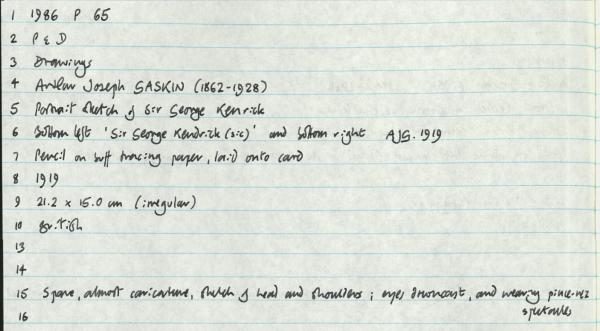 1 1986 P 65
2 P & D
3 Drawings
4 Arthur Joseph GASKIN (1862-1928)
5 Portrait sketch of Sir George Kenrick
6 Bottom left 'Sir George Kendrick (sic)' and bottom right AJG. 1919
7 Pencil on buff tracing paper, laid onto card
8 1919
9 21.2 x 15.0 cm (irregular)
10 British
13
14
15 Spare, almost caricature, sketch of head and shoulders; eyes downcast, and wearing pince-nez
16 spectacles